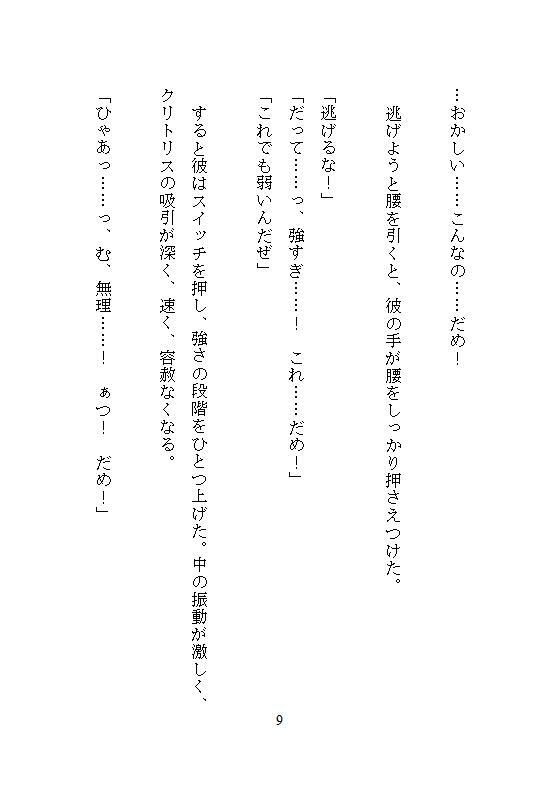 …おかしい……こんなの……だめ！
逃げようと腰を引くと、彼の手が腰をしっかり押さえつけた。
「逃げるな！」
「だって……っ、強すぎ……！　これ……だめ！」
「これでも弱いんだぜ」
すると彼はスイッチを押し、強さの段階をひとつ上げた。中の振動が激しく、
クリトリスの吸引が深く、速く、容赦なくなる。
「ひゃあっ……っ、む、無理……！　ぁつ！　だめ！」
9